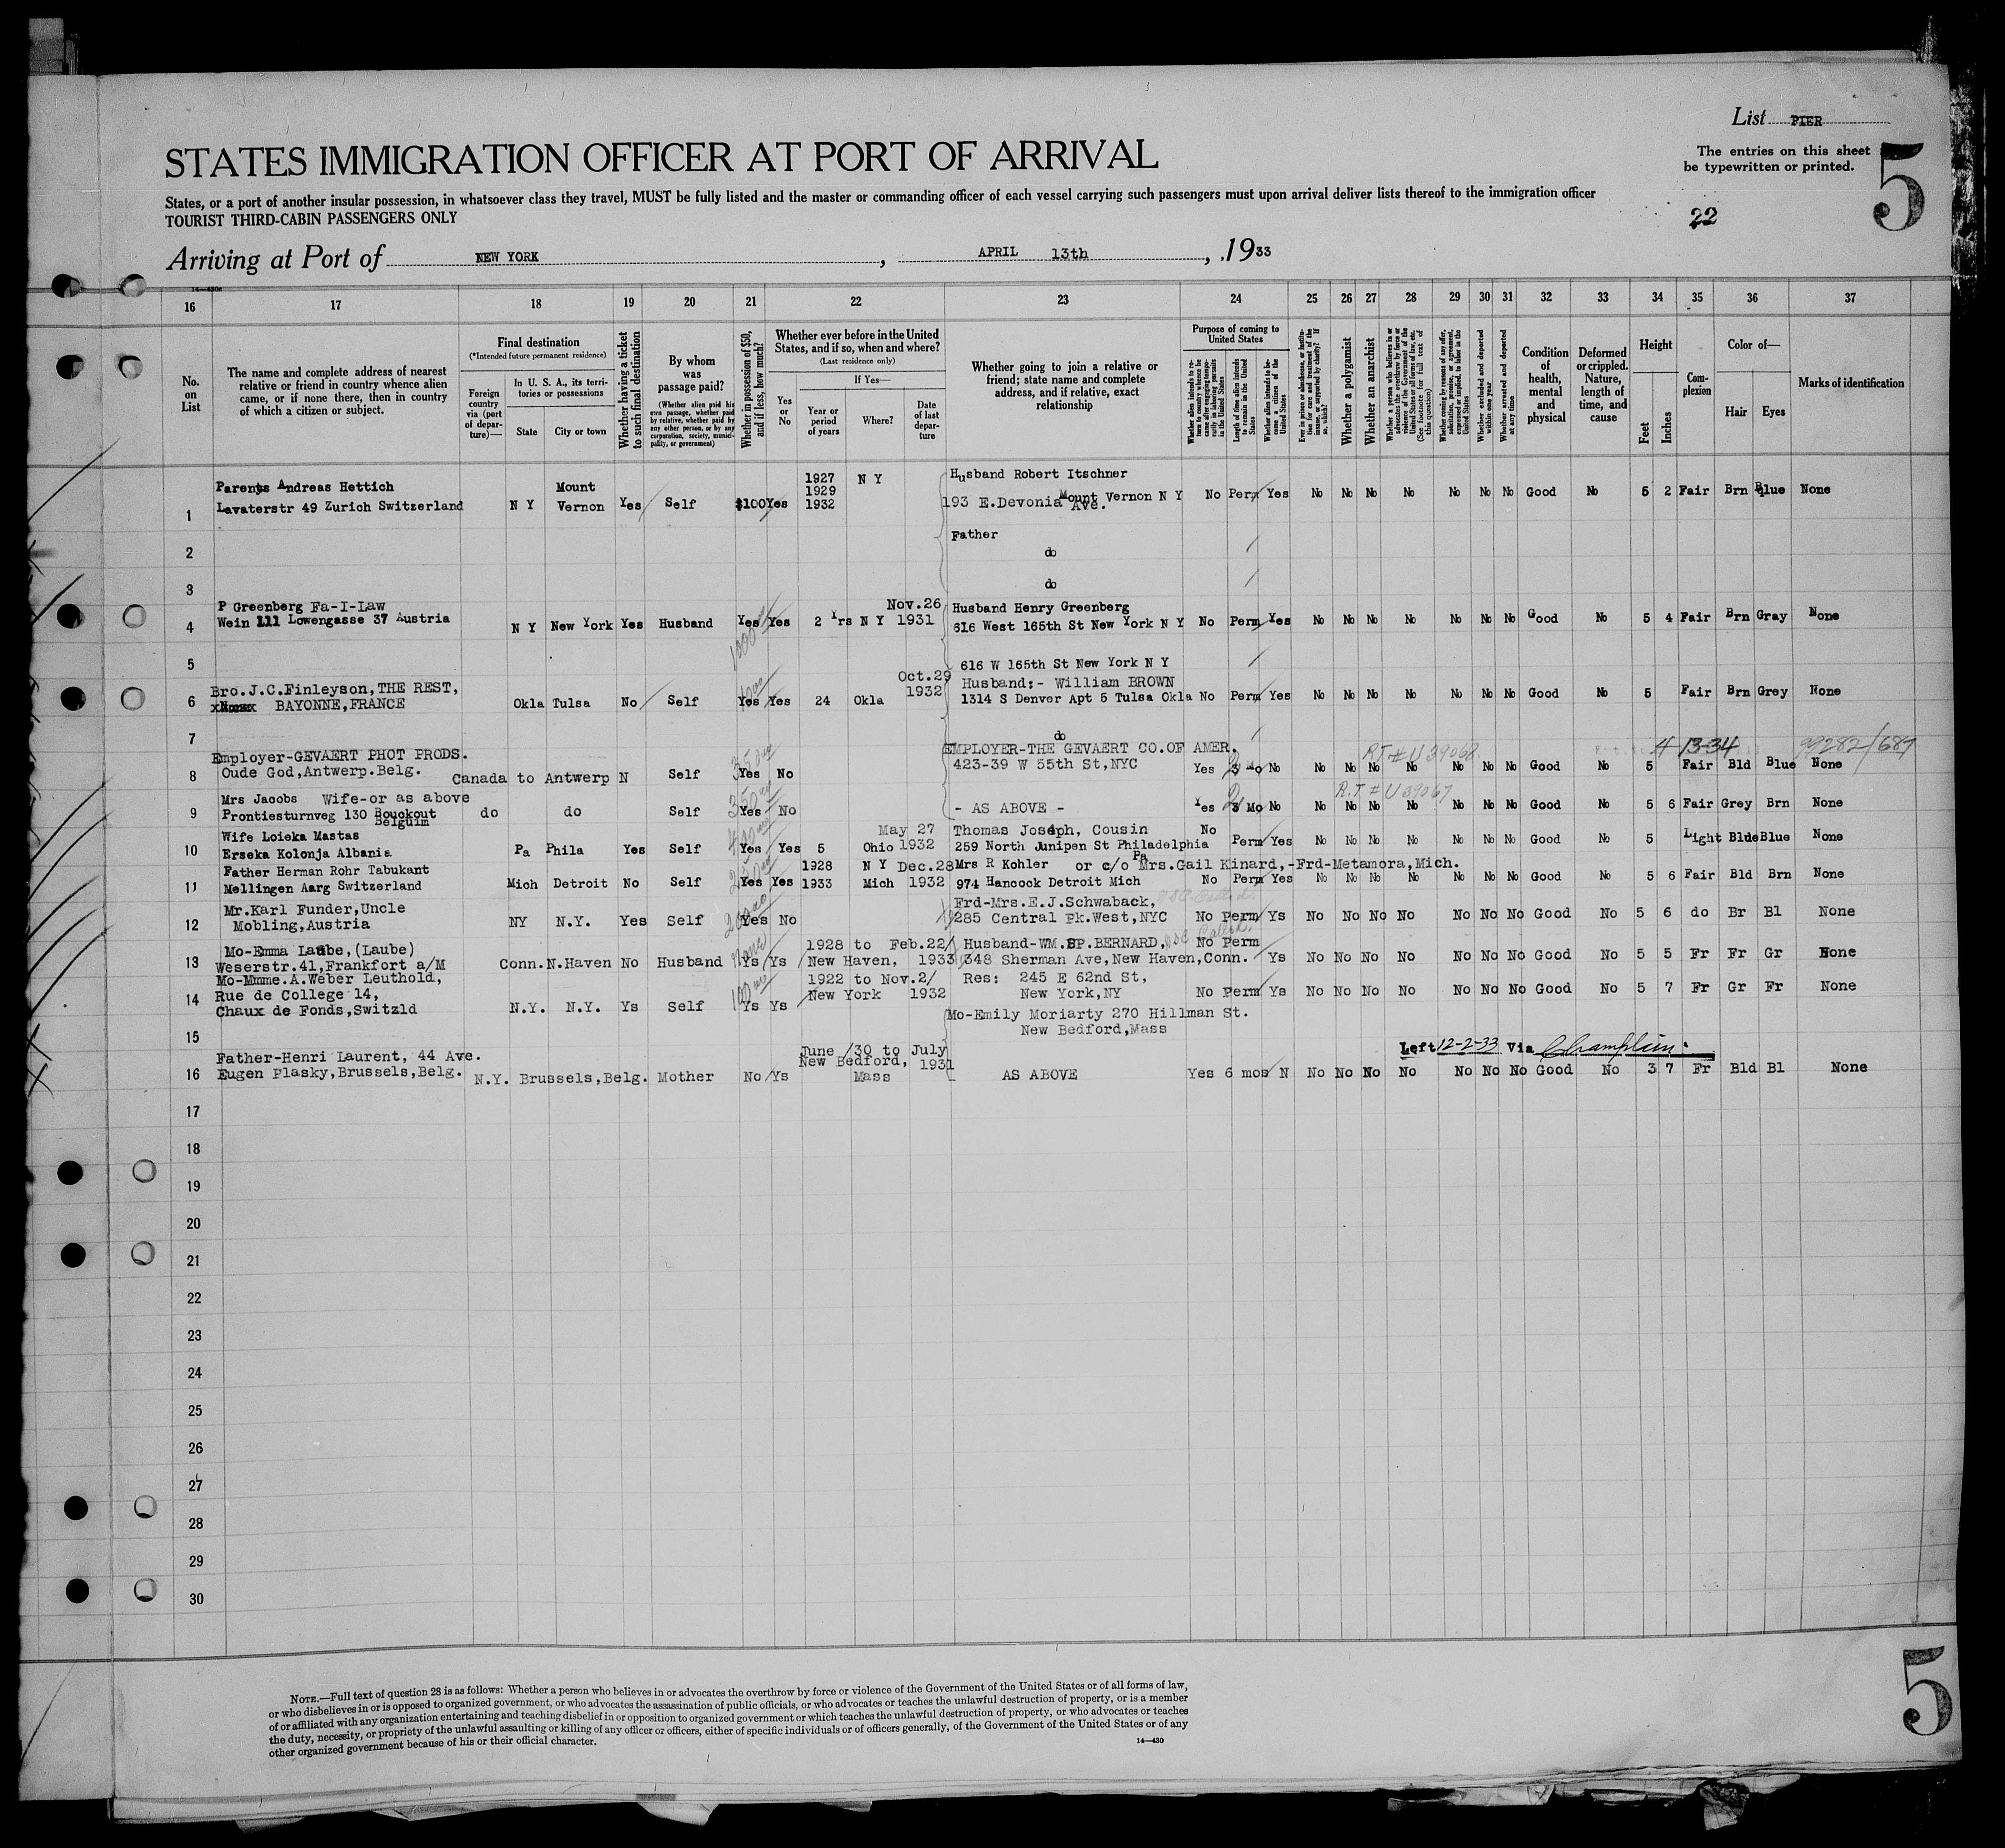 List PIER
STATES IMMIGRATION OFFICER AT PORT OF ARRIVAL
The entries on this sheet
be typewritten or printed.
5
States, or a port of another insular possession, in whatsoever class they travel, MUST be fully listed and the master or commanding officer of each vessel carrying such passengers must upon arrival deliver lists thereof to the immigration officer
TOURIST THIRD-CABIN PASSENGERS ONLY
22
Arriving at Port of NEW YORK, APRIL 13th, 1933
14—430
16 17 18 19 20 21 22 23 24 25 26 27 28 29 30 31 32 33 34 35 36 37
No. on List
The name and complete address of nearest relative or friend in country whence alien came, or if none there, then in country of which a citizen or subject.
Final destination
(*Intended future permanent residence)
Foreign country via (port of departure)—
In U. S. A., its territories or possessions
State
City or town
Whether having a ticket to such final destination
By whom was passage paid?
(Whether alien paid his own passage, whether paid by relative, whether paid by any other person, or by any corporation, society, municipality, or government)
Whether in possession of $50, and if less, how much?
Whether ever before in the United States, and if so, when and where?
(Last residence only)
Yes or No
If Yes—
Year or period of years
Where?
Date of last departure
Whether going to join a relative or friend; state name and complete address, and if relative, exact relationship
Purpose of coming to United States
Whether alien intends to return to country whence he came after engaging temporarily in laboring pursuits in the United States
Length of time alien intends to remain in the United States
Whether alien intends to become a citizen of the United States
Ever in prison or almshouse, or institution for care and treatment of the insane, or supported by charity? If so, which?
Whether a polygamist
Whether an anarchist
Whether a person who believes in or advocates the overthrow by force or violence of the Government of the United States or all forms of law, etc. (See footnote for full text of this question)
Whether coming by reason of any offer, solicitation, promise, or agreement, expressed or implied, to labor in the United States
Whether excluded and deported within one year
Whether arrested and deported at any time
Condition of health, mental and physical
Deformed or crippled. Nature, length of time, and cause
Height
Feet
Inches
Complexion
Color of—
Hair
Eyes
Marks of identification
Parents Andreas Hettich Mount 1927 N Y Husband Robert Itschner
1929
1 Lavaterstr 49 Zurich Switzerland N Y Vernon Yes Self $100 Yes 1932 193 E.Devonia Ave. Mount Vernon N Y No Perm Yes No No No No No No No Good No 5 2 Fair Brn Blue None
Father
2 do
3 do
P Greenberg Fa-I-Law Nov.26 Husband Henry Greenberg
4 Wein 111 Lowengasse 37 Austria N Y New York Yes Husband Yes Yes 2 Yrs N Y 1931 616 West 165th St New York N Y No Perm Yes No No No No No No No Good No 5 4 Fair Brn Gray None
1000
5 616 W 165th St New York N Y
Bro.J.C.Finleyson,THE REST, Oct.29 Husband:- William BROWN
6 BAYONNE,FRANCE Okla Tulsa No Self Yes Yes 24 Okla 1932 1314 S Denver Apt 5 Tulsa Okla No Perm Yes No No No No No No No Good No 5 Fair Brn Grey None
7 do
Employer-GEVAERT PHOT PRODS. EMPLOYER-THE GEVAERT CO.OF AMER. RT # U 39068 4 13-34 99282/687
8 Oude God,Antwerp.Belg. Canada to Antwerp N Self Yes No 423-39 W 55th St,NYC Yes 3 Mo No No No No No No No No Good No 5 Fair Bld Blue None
Mrs Jacobs Wife-or as above R.T # U 39067
9 Prontiesturnveg 130 Bouckout Belguim do do Self Yes No - AS ABOVE - Yes 3 Mo No No No No No No No No Good No 5 6 Fair Grey Brn None
Wife Loieka Mastas May 27 Thomas Joseph, Cousin No
10 Erseka Kolonja Albania Pa Phila Yes Self Yes Yes 5 Ohio 1932 259 North Junipen St Philadelphia Pa Perm Yes No No No No No No No Good No 5 Light Blde Blue None
Father Herman Rohr Tabukant 1928 N Y Dec.28 Mrs R Kohler or c/o Mrs.Gail Kinard,-Frd-Metamora,Mich.
11 Mellingen Aarg Switzerland Mich Detroit No Self Yes Yes 1933 Mich 1932 974 Hancock Detroit Mich No Perm Yes No No No No No No No Good No 5 6 Fair Bld Brn None
Mr.Karl Funder,Uncle Frd-Mrs.E.J.Schwaback,
12 Mobling,Austria NY N.Y. Yes Self Yes No 285 Central Pk.West,NYC No Perm Ys No No No No No No No Good No 5 6 do Br Bl None
Mo-Emma Laube,(Laube) 1928 to Feb.22/ Husband-WM.SP.BERNARD, No Perm
13 Weserstr.41,Frankfort a/M Conn. N.Haven No Husband Ys Ys New Haven, 1933 348 Sherman Ave,New Haven,Conn. Ys No No No No No No No Good No 5 5 Fr Fr Gr None
Mo-Mmme.A.Weber Leuthold, 1922 to Nov.2/ Res: 245 E 62nd St,
14 Rue de College 14, N.Y. N.Y. Ys Self Ys Ys New York 1932 New York,NY No Perm Ys No No No No No No No Good No 5 7 Fr Gr Fr None
Chaux de Fonds,Switzld
Mo-Emily Moriarty 270 Hillman St.
15 New Bedford,Mass
Father-Henri Laurent, 44 Ave. June /30 to July Left 12-2-33 Via Champlain
16 Eugen Plasky,Brussels,Belg. N.Y. Brussels,Belg. Mother No Ys New Bedford, Mass 1931 AS ABOVE Yes 6 mos N No No No No No No No Good No 3 7 Fr Bld Bl None
17
18
19
20
21
22
23
24
25
26
27
28
29
30
NOTE.—Full text of question 28 is as follows: Whether a person who believes in or advocates the overthrow by force or violence of the Government of the United States or of all forms of law,
or who disbelieves in or is opposed to organized government, or who advocates the assassination of public officials, or who advocates or teaches the unlawful destruction of property, or is a member
of or affiliated with any organization entertaining and teaching disbelief in or opposition to organized government or which teaches the unlawful destruction of property, or who advocates or teaches
the duty, necessity, or propriety of the unlawful assaulting or killing of any officer or officers, either of specific individuals or of officers generally, of the Government of the United States or of any
other organized government because of his or their official character.
14—430
5